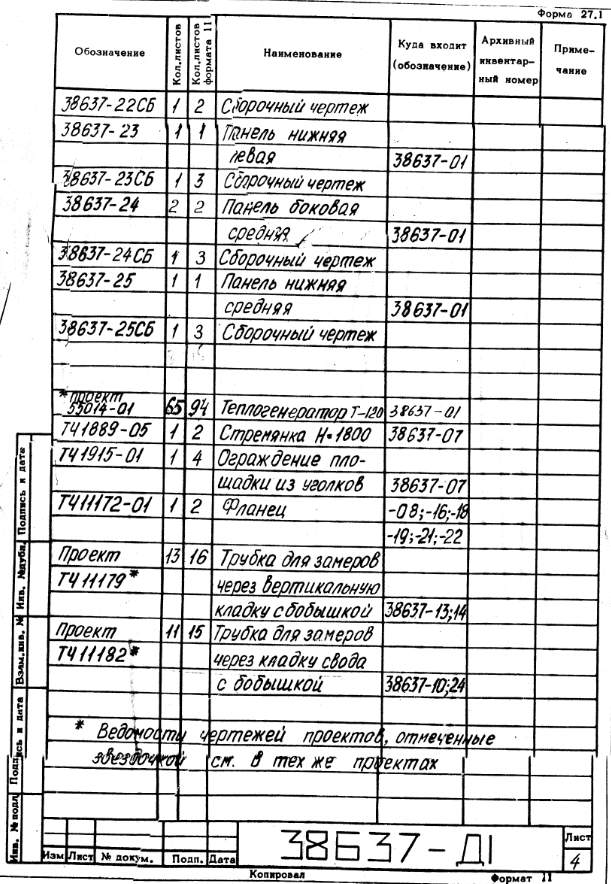 Форма 27.1
Обозначение Кол.листов Кол.листов формата 11 Наименование Куда входит (обозначение) Архивный инвентар-ный номер Приме-чание
38637-22СБ 1 2 Сборочный чертеж
38637-23 1 1 Панель нижняя
левая 38637-01
38637-23СБ 1 3 Сборочный чертеж
38637-24 2 2 Панель боковая
средняя 38637-01
38637-24СБ 1 3 Сборочный чертеж
38637-25 1 1 Панель нижняя
средняя 38637-01
38637-25СБ 1 3 Сборочный чертеж
* проект
55014-01 65 94 Теплогенератор Т-120 38637-01
ТЧ1889-05 1 2 Стремянка Н=1800 38637-07
ТЧ1915-01 1 4 Ограждение пло-
щадки из уголков 38637-07
ТЧ11172-01 1 2 Фланец -08;-16;-18
-19;-21;-22
Проект 13 16 Трубка для замеров
ТЧ11179* через вертикальную
кладку с бобышкой 38637-13;14
Проект 11 15 Трубка для замеров
ТЧ11182* через кладку свода
с бобышкой 38637-10;24
* Ведомости чертежей проектов, отмеченные
звездочкой см. в тех же проектах
Инв. № подл. Подпись и дата Взам.инв. № Инв. № дубл. Подпись и дата
Изм Лист № докум. Подп. Дата
38637-Д1
Лист
4
Копировал Формат 11